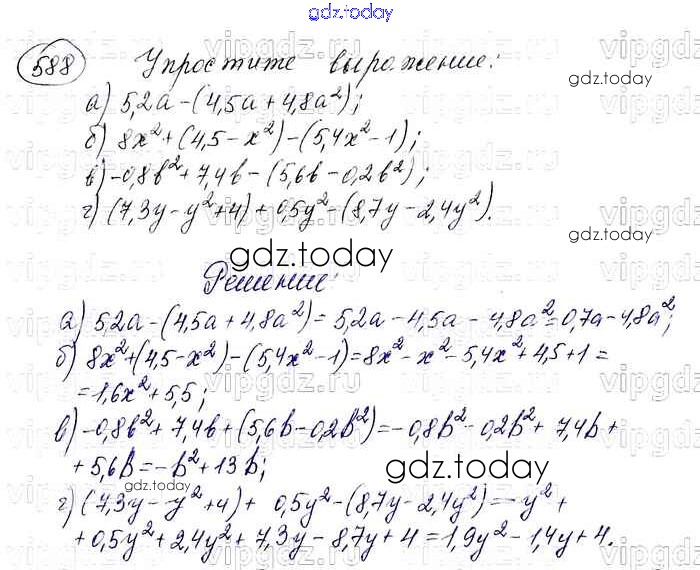 gdz.today
588 Упростите выражение:
gdz.today
а) 5,2a-(4,5a+4,8a²);
б) 8x²+(4,5-x²)-(5,4x²-1);
в) -0,8b²+7,4b-(5,6b-0,2b²);
г) (7,3y-y²+4)+0,5y²-(8,7y-2,4y²).
gdz.today
gdz.today
Решение:
а) 5,2a-(4,5a+4,8a²)=5,2a-4,5a-4,8a²=0,7a-4,8a²;
б) 8x²+(4,5-x²)-(5,4x²-1)=8x²-x²-5,4x²+4,5+1=
=1,6x²+5,5;
в) -0,8b²+7,4b+(5,6b-0,2b²)=-0,8b²-0,2b²+7,4b+
+5,6b=-b²+13b;
gdz.today
gdz.today
г) (7,3y-y²+4)+0,5y²-(8,7y-2,4y²)=-y²+
+0,5y²+2,4y²+7,3y-8,7y+4=1,9y²-1,4y+4.